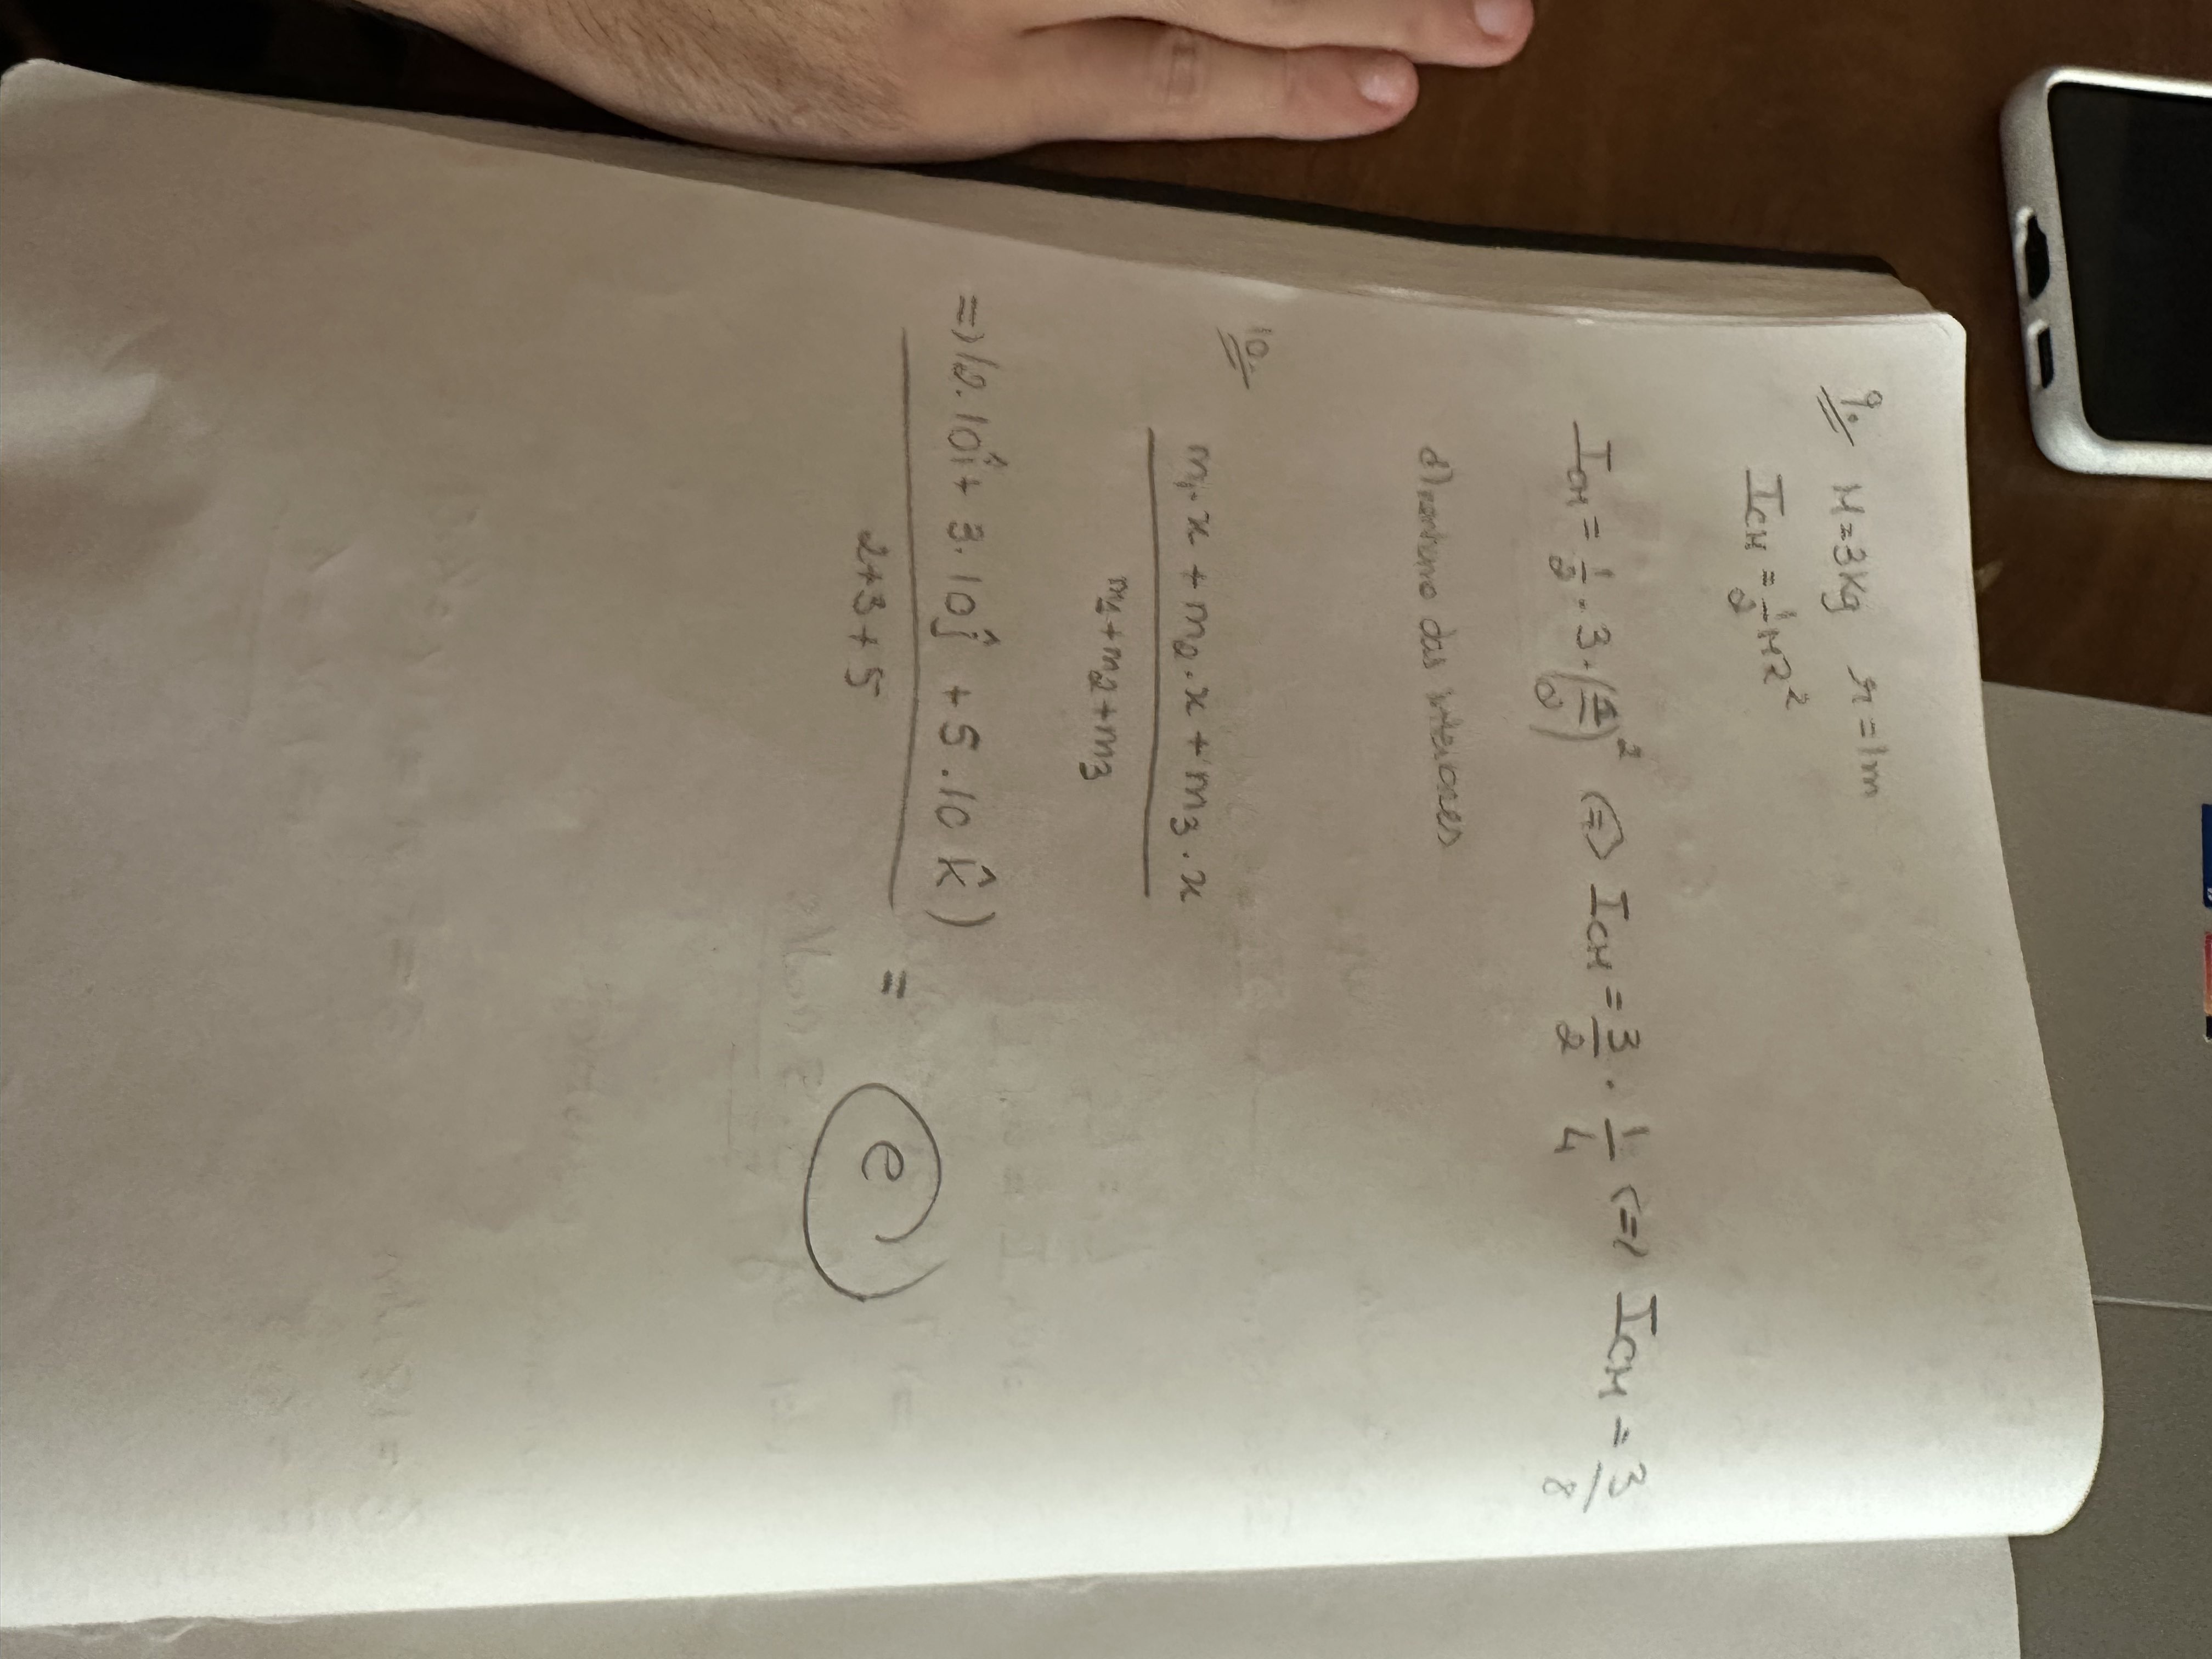 9. M=3Kg r=1m
I_CM = 1/2 M R²
I_CM = 1/2 · 3 · (1/2)² (=) I_CM = 3/2 · 1/4 (=) I_CM = 3/8
diminuimo das
10.
m₁·x + m₂·x + m₃·x
m₁+m₂+m₃
=> (2.10î + 3.10ĵ + 5.10 k̂) =
2+3+5
e)